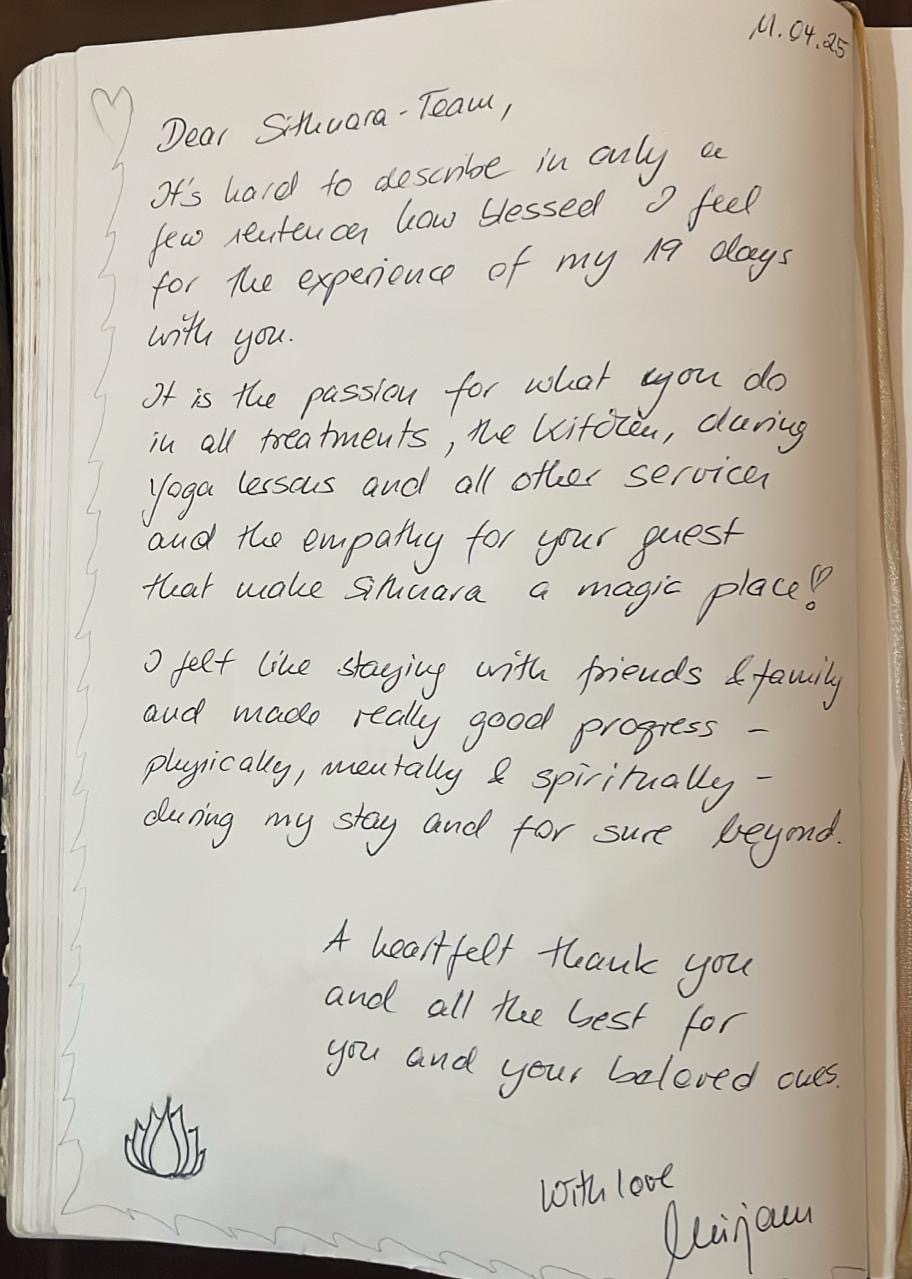 11.04.25
Dear Sithnara-Team,
It's hard to describe in only a
few sentences how blessed I feel
for the experience of my 19 days
with you.
It is the passion for what you do
in all treatments, the kitchen, during
yoga lessons and all other services
and the empathy for your guest
that make Sithnara a magic place!
I felt like staying with friends & family
and made really good progress -
physically, mentally & spiritually -
during my stay and for sure beyond.
A heartfelt thank you
and all the best for
you and your beloved ones.
With love
Mirjam